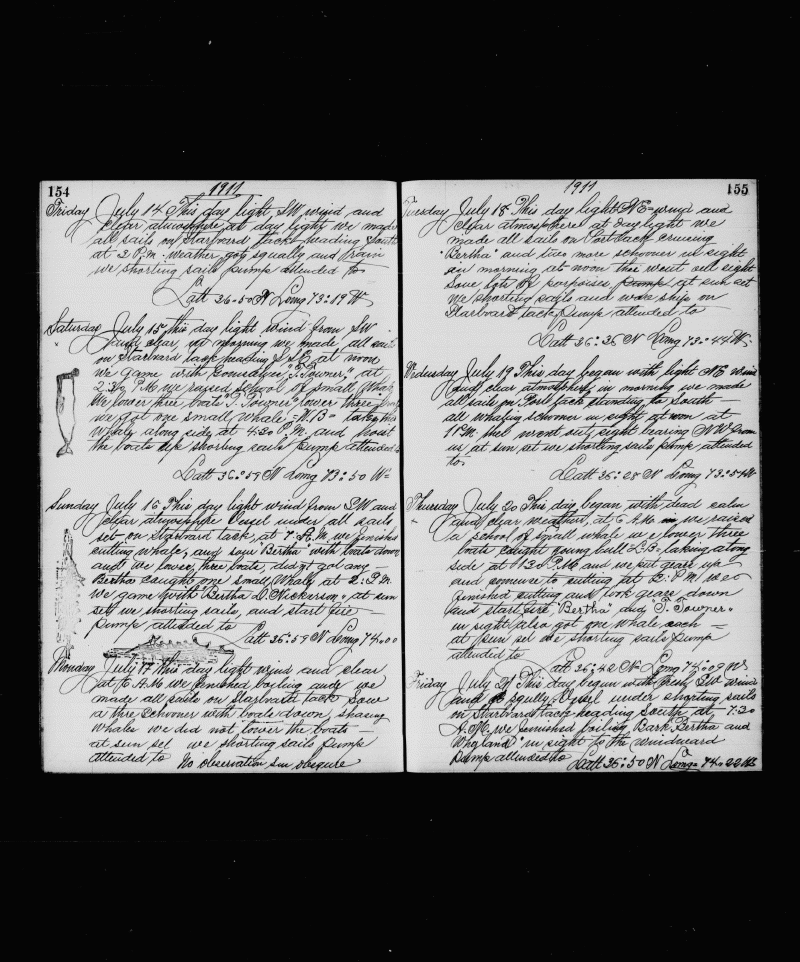 154
1911
Friday July 14 This day light SW wind and
clear atmosphere at day light we made
all sails on Starboard tack heading South
at 2 P.M. weather got squally and
we shorting sails pump attended to
Latt 36=50 N Long 73=19 W
Saturday July 15 this day light wind from SW
and clear, in morning we made all sails
on Starbord tack heading S.E, at noon
we game with "T. Towner," at
2:30 P.M. we raised school of small Whale
We lower three boats "T. Towner" lower three
we got one small whale taking this
whale along side, at 4:30 P.M. and hoist
the boats up shorting sails pump attended to
Latt 36=59 N Long 73=50 W=
Sunday July 16 This day light wind from SW and
clear atmosphere Vessel under all sails
set on Starbord tack, at 7. A.M. we finished
cutting whale, and saw "Bertha" with boats down
and we lower, three boats, did not got any
Bertha caught one small Whale at 2: P.M.
we game with Bertha D. Nickerson," at sun
set we shorting sails, and start fire
pump attended to
Latt 35=59 N Long 74=00
Monday July 17 This day light wind and clear
at 6 A.M. we finished boiling and we
made all sails on Starbord tack Saw
a thre schooner with boats down, chasing
whales we did not lower the boats
at sun set we shorting sails pump
attended to No observation sun obsqure
1911
155
Tuesday July 18 This day light NE= wind and
clear atmosphere at day light we
made all sails on Port tack cruising
"Bertha" and two more schooner in sight
in morning at noon thei went out sight
Saw lots of porpoises, at sun set
we shorting sails and wore ship on
Starbord tack pump attended to
Latt 36=35 N Long 73=44 W=
Wednesday July 19 This day began with light NE wind
and clear atmosphere in morning we made
all sails on Port tack standing to South
all whaling schooner in sight at noon at
1 P.M. thei went out sight bearing NW from
us at sun set we shorting sails pump attended
to
Latt 35=28 N Long 73=54 W
Thursday July 20 This day began with dead calm
and clear weather, at 6 A.M. we raised
a school of small whale we lower three
boats caught young bull L.B. taking along
side at 1:30 P.M. and we put geare up
and comence to cutting at 2: P.M. we
finished cutting and took geare down
and start fire "Bertha" and "T. Towner"
in sight also got one whale, each
at sun set we shorting sails pump
attended to
Latt 35=42 N. Long 74=09 W
Friday July 21 This day began with fresh SW wind
and squlty. Vessel under shorting sails
on Starbord tack heading South at 7:30
A.M. we finished boiling Bark Bertha and
in sight to the windward
pump attended to Latt 35=50 N Long= 74=22 W